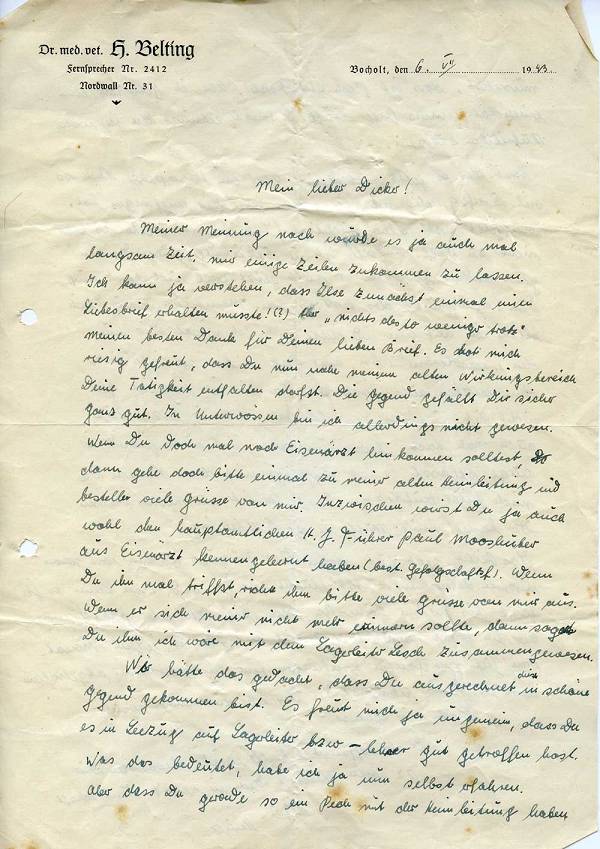 Dr. med. vet. H. Belting
Fernsprecher Nr. 2412
Nordwall Nr. 31
Bocholt, den 6. VII 1943.
Mein lieber Dicker!
Meiner Meinung nach würde es ja auch mal
langsam Zeit, mir einige Zeilen zukommen zu lassen.
Ich kann ja verstehen, dass Ilse zunächst einmal einen
Liebesbrief erhalten musste!(?) Aber „nichts desto weniger trotz"
meinen besten Dank für Deinen lieben Brief. Es hat mich
riesig gefreut, dass Du nun nahe meinem alten Wirkungsbereich
Deine Tätigkeit entfalten darfst. Die Gegend gefällt Dir sicher
ganz gut. In Unterwössen bin ich allerdings nicht gewesen.
Wenn Du doch mal nach Eisenärzt hinkommen solltest, so
dann gehe doch bitte einmal zu meiner alten Heimleitung und
bestelle viele Grüsse von mir. Inzwischen wirst Du ja auch
wohl den hauptamtlichen H.J. Führer Paul Mooshuber
aus Eisenärzt kennengelernt haben (best. Gefolgschaftsf.). Wenn
Du ihn mal triffst, richte ihm bitte viele Grüsse von mir aus.
Wenn er sich meiner nicht mehr erinnern sollte, dann sage
Du ihm ich wäre mit dem Lagerleiter Lesch zusammengewesen.
Wer hätte das gedacht, dass Du ausgerechnet in diese schöne
Gegend gekommen bist. Es freut mich ja ungemein, dass Du
es in Bezug auf Lagerleiter bzw – lehrer gut getroffen hast.
Was das bedeutet, habe ich ja nun selbst erfahren.
Aber dass Du gerade so ein Pech mit der Heimleitung haben